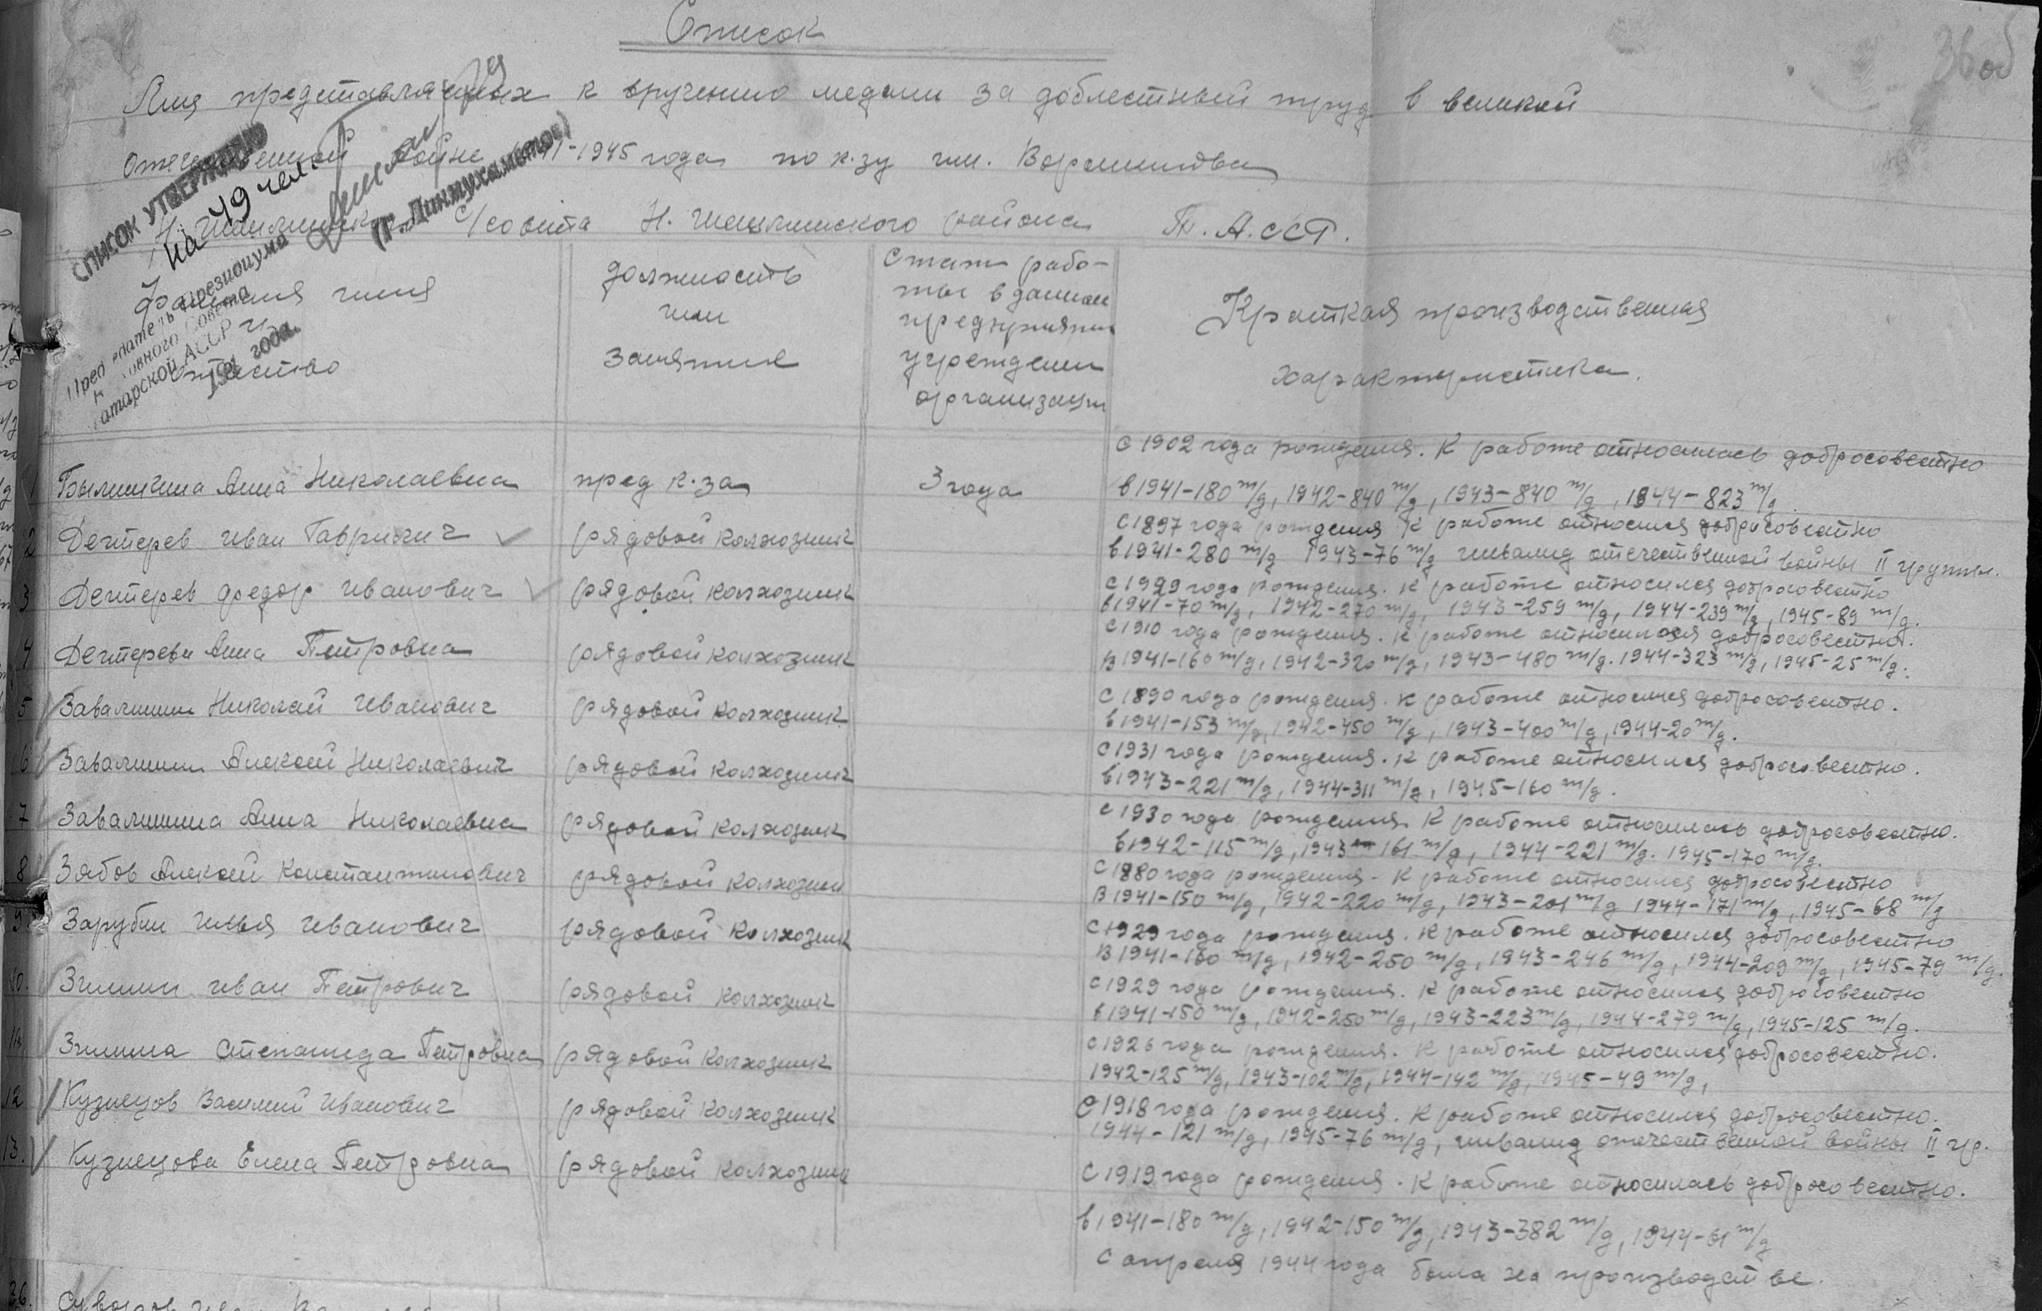 Список
36 об
Лиц представляемых к вручению медали за доблестный труд в великой
Отечественной войне 1941-1945 года по к-зу им. Ворошилова
с/совета Н. Шешминского района Т. А. ССР.
СПИСОК УТВЕРЖДЕНО
на 49 чел.
(Г. Динмухаметов)
Председатель Президиума
Верховного Совета
Татарской АССР
194 года.
Фамилия имя
и
отчество
должность
или
занятие
Стаж рабо-
ты в данном
предприятии
учреждении
организации
Краткая производственная
характеристика.
с 1902 года рождения. К работе относилась добросовестно
1 Анна Николаевна пред к-за 3 года в 1941-180 т/д, 1942-840 т/д, 1943-840 т/д, 1944-823 т/д
с 1897 года рождения К работе относился добросовестно
2 Дегтерев Иван Гаврилич рядовой колхозник в 1941-280 т/д 1943-76 т/д инвалид отечественной войны II группы.
с 1929 года рождения. К работе относился добросовестно
3 Дегтерев Федор Иванович рядовой колхозник в 1941-70 т/д, 1942-270 т/д, 1943-259 т/д, 1944-239 т/д, 1945-89 т/д.
с 1910 года рождения. К работе относилася добросовестно.
4 Дегтерева Анна Петровна рядовой колхозник В 1941-160 т/д, 1942-320 т/д, 1943-480 т/д. 1944-323 т/д, 1945-25 т/д.
с 1890 года рождения. К работе относился добросовестно.
5 Завалишин Николай Иванович рядовой колхозник в 1941-153 т/д, 1942-450 т/д, 1943-400 т/д, 1944-20 т/д.
с 1931 года рождения. К работе относился добросовестно.
6 Завалишин Алексей Николаевич рядовой колхозник в 1943-221 т/д, 1944-311 т/д, 1945-160 т/д.
с 1930 года рождения К работе относилась добросовестно.
7 Завалишина Анна Николаевна рядовой колхозник в 1942-115 т/д, 1943-161 т/д, 1944-221 т/д. 1945-170 т/д.
с 1880 года рождения. К работе относился добросовестно
8 Зябов Алексей Константинович рядовой колхозник В 1941-150 т/д, 1942-220 т/д, 1943-201 т/д 1944-171 т/д, 1945-68 т/д
с 1929 года рождения. К работе относился добросовестно
9. Зарубин Илья Иванович рядовой колхозник В 1941-160 т/д, 1942-250 т/д, 1943-246 т/д, 1944-209 т/д, 1945-79 т/д.
с 1929 года рождения. К работе относился добросовестно
10. Зимин Иван Петрович рядовой колхозник в 1941-150 т/д, 1942-250 т/д, 1943-223 т/д, 1944-279 т/д, 1945-125 т/д.
с 1926 года рождения. К работе относился добросовестно.
11. Зимина Степанида Петровна рядовой колхозник 1942-125 т/д, 1943-102 т/д, 1944-142 т/д, 1945-49 т/д,
12 Кузнецов Василий Иванович рядовой колхозник с 1918 года рождения. К работе относился добросовестно.
1944-121 т/д, 1945-76 т/д, инвалид отечественной войны II гр.
13. Кузнецова Елена Петровна рядовой колхозник с 1919 года рождения. К работе относилась добросовестно.
в 1941-180 т/д, 1942-150 т/д, 1943-382 т/д, 1944-61 т/д
с апреля 1944 года была на производстве.
26.